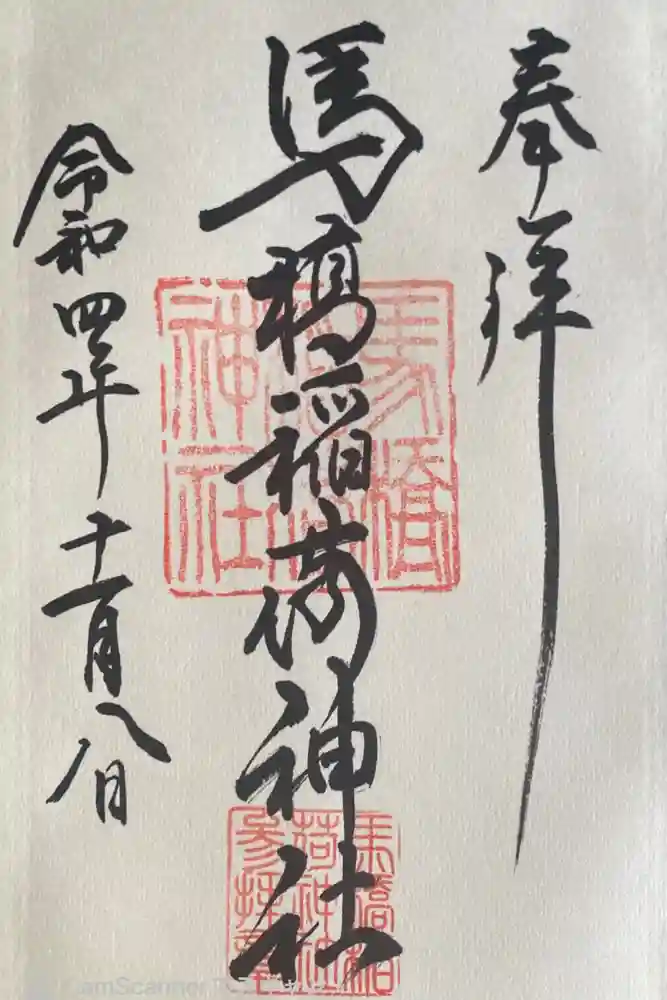 奉拝
馬橋稲荷神社
令和四年十一月八日
馬橋
稲荷
神社
馬橋稲
荷神社
参拝章
CamScanner